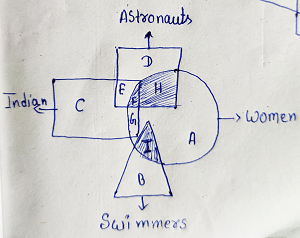 Astronauts
D
E H
F
Indian C G
Women
A
I
B
Swimmers